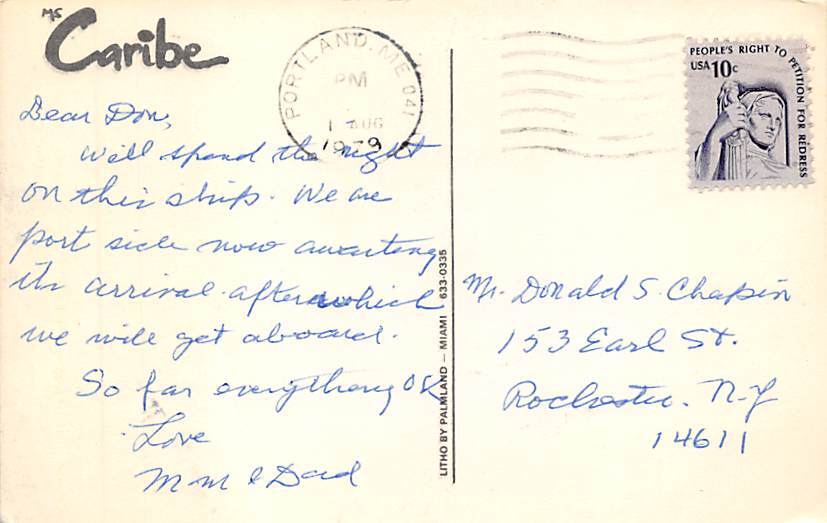 MS
Caribe
Dear Don,
Will spend the night
on this ship. We are
port side now awaiting
its arrival after which
we will get aboard.
So far everything OK
Love
Mom & Dad
PORTLAND, ME 041
PM
1 AUG
1979
PEOPLE'S RIGHT TO PETITION FOR REDRESS
USA 10c
LITHO BY PALMLAND — MIAMI 633-0335
Mr. Donald S. Chapin
153 Earl St.
Rochester, N-Y
14611